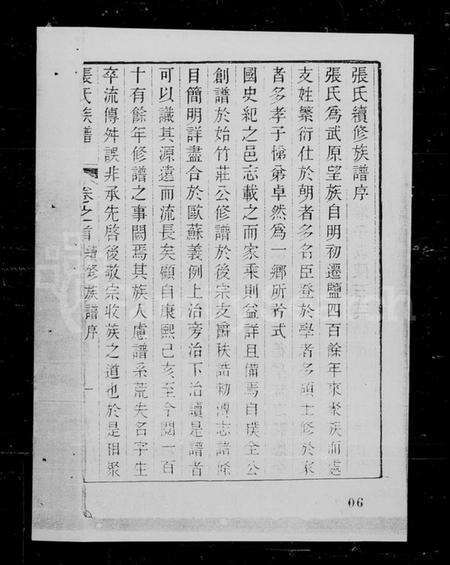 張氏續修族譜序
張氏為武原望族自明初遷鹽四百餘年來聚族而處
支姓繁衍仕於朝者多名臣登於學者多碩士修於家
者多孝子悌弟卓然為一鄉所矜式
國史紀之邑志載之而家乘則益詳且備焉自樸全公
創譜於始竹莊公修譜於後宗支圖秩誥勅傳志諸條
目簡明詳盡合於歐蘇義例上治旁治下治讀是譜者
可以識其源遠而流長矣顧自康熙己亥至今閱一百
十有餘年修譜之事闕焉其族人慮譜系荒失名字生
卒流傳舛誤非承先啓後敬宗收族之道也於是相聚
張氏族譜 卷之首 續修族譜序 一
06